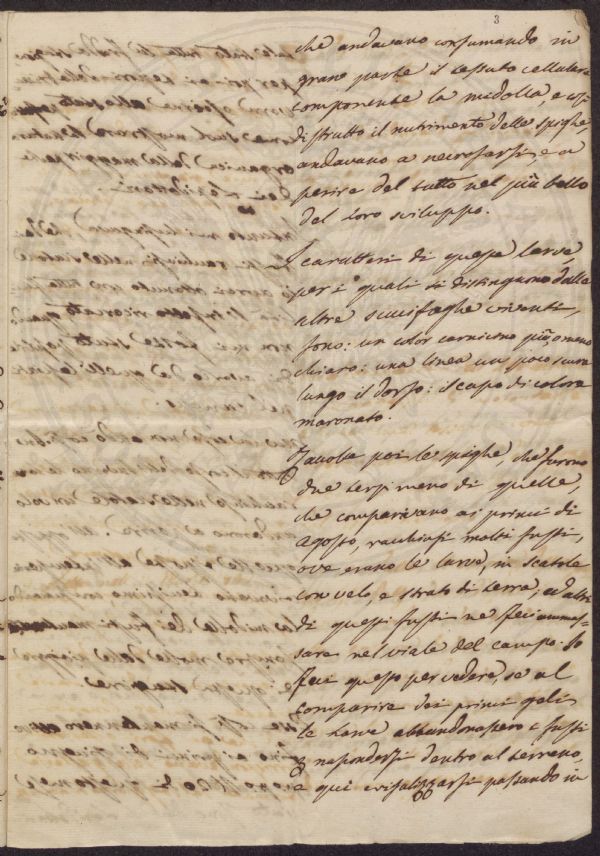 3
che andavano consumando in
gran parte il tessuto cellulare
componente la midolla, e così
distrutto il nutrimento delle spighe,
andavano a necrosarsi, e a
perire del tutto nel più bello
del loro sviluppo.
I caratteri di queste larve,
per i quali si distinguono dalle
altre viventi,
sono: un color carnicino più, o meno
chiaro: una linea un poco scura
lungo il dorso: il capo di colore
maronato.
poi le spighe, che furono
due terzi meno di quelle,
che comparivano ai primi di
Agosto, racchiusi molti fusti,
ove erano le larve, in scatole
con velo, e strato di terra, ed altri
di questi fusti ne feci ammas-
sare nel viale del campo. Io
feci questo per vedere, se al
comparire dei primi geli
le larve abbandonassero i fusti
nascondersi dentro al terreno,
e qui crisalizzarsi passando in